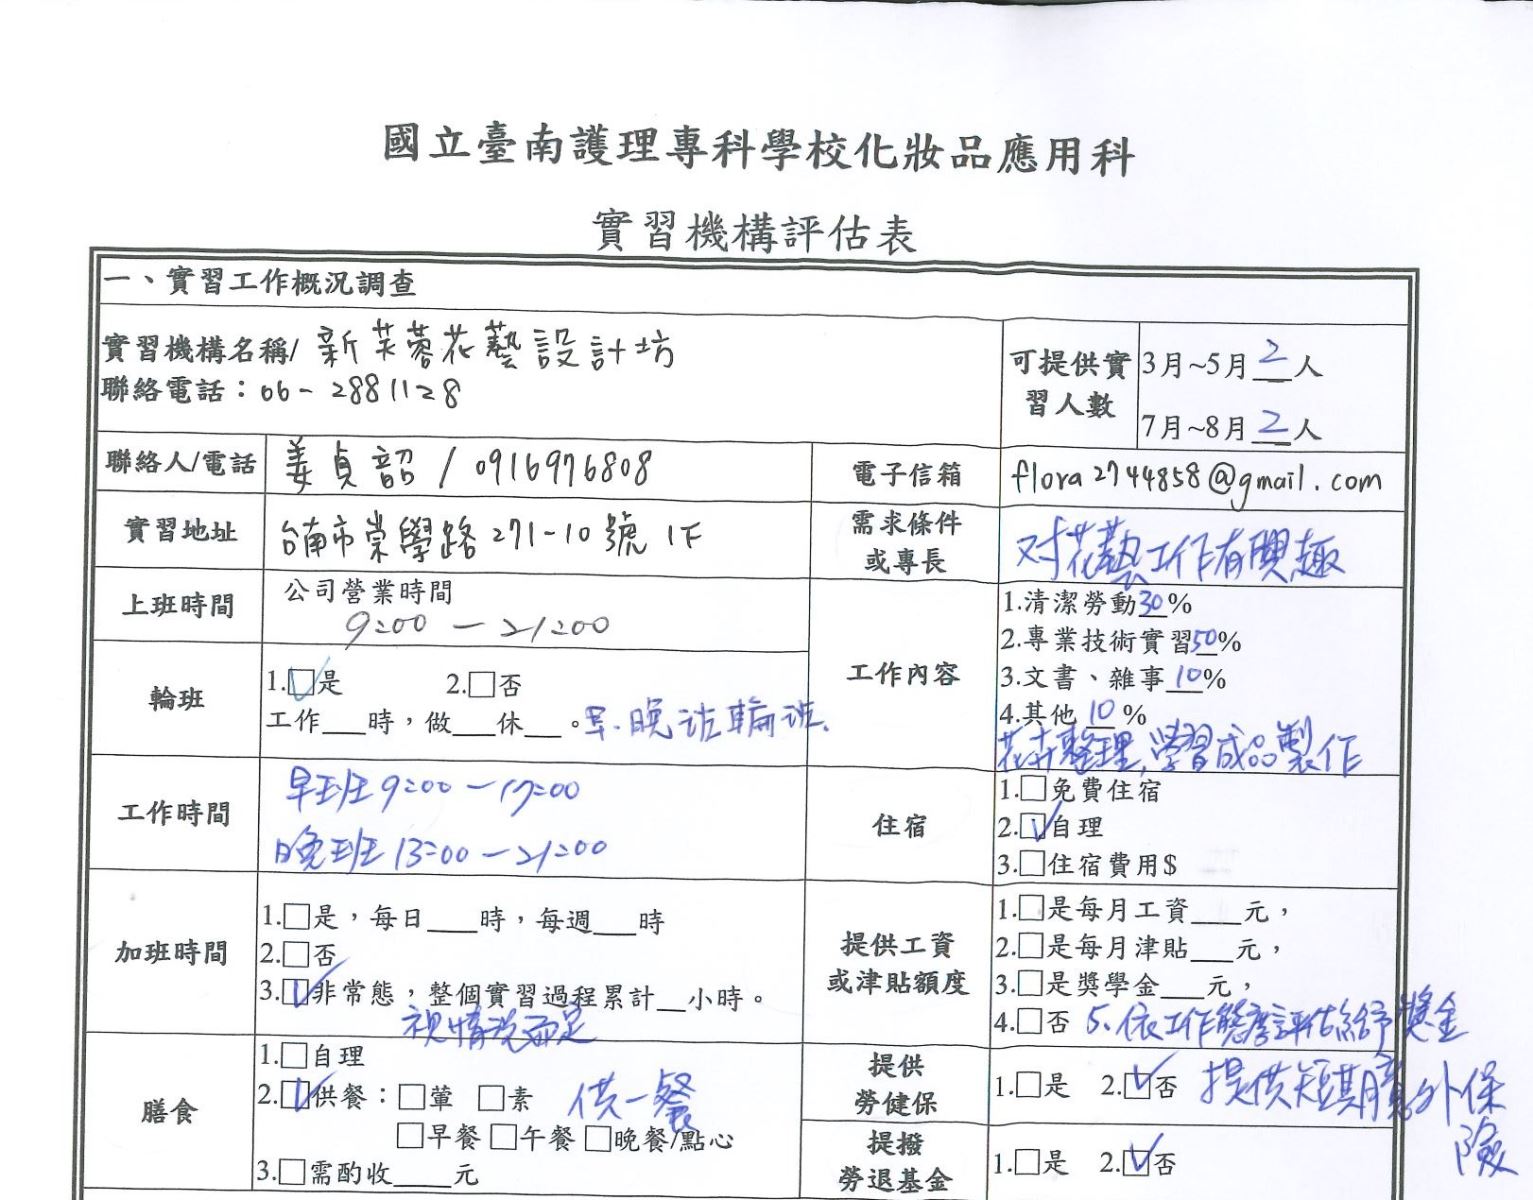 國立臺南護理專科學校化妝品應用科
實習機構評估表
一、實習工作概況調查
實習機構名稱/ 新芙蓉花藝設計坊
聯絡電話：06-2881128
可提供實習人數
3月~5月 2 人
7月~8月 2 人
聯絡人/電話
姜貞韶 / 0916976808
電子信箱
flora2744858@gmail.com
實習地址
台南市崇學路271-10號 1F
需求條件
或專長
对花藝工作有興趣
上班時間
公司營業時間
9:00 — 21:00
工作內容
1.清潔勞動30%
2.專業技術實習50%
3.文書、雜事10%
4.其他 10 %
花卉整理,學習成品製作
輪班
1.☑是 2.□否
工作___時，做___休___。早.晚班輪班.
工作時間
早班9:00—17:00
晚班13:00—21:00
住宿
1.□免費住宿
2.☑自理
3.□住宿費用$
加班時間
1.□是，每日___時，每週___時
2.□否
3.☑非常態，整個實習過程累計__小時。
視情況而定
提供工資
或津貼額度
1.□是每月工資___元，
2.□是每月津貼___元，
3.□是獎學金___元，
4.□否 5.依工作態度評估給予獎金
膳食
1.□自理
2.☑供餐：□葷 □素 供一餐
□早餐□午餐□晚餐/點心
3.□需酌收____元
提供
勞健保
1.□是 2.☑否 提供短期意外保
險
提撥
勞退基金
1.□是 2.☑否